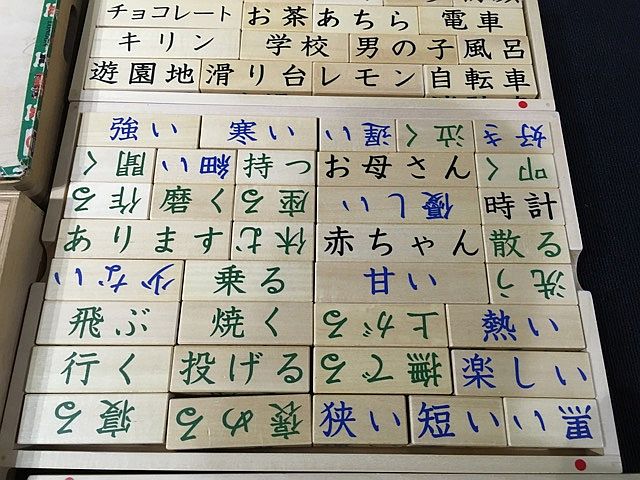 チョコレート お茶 あちら 電車
キリン 学校 男の子 風呂
遊園地 滑り台 レモン 自転車
強い 寒い 遅い 泣く 好き
聞く 細い 持つ お母さん 叩く
作る 磨く 座る 優しい 時計
あります 休む 赤ちゃん 散る
少ない 乗る 甘い 洗う
飛ぶ 焼く 上がる 熱い
行く 投げる 撫でる 楽しい
寝る 褒める 狭い 短い 黒い